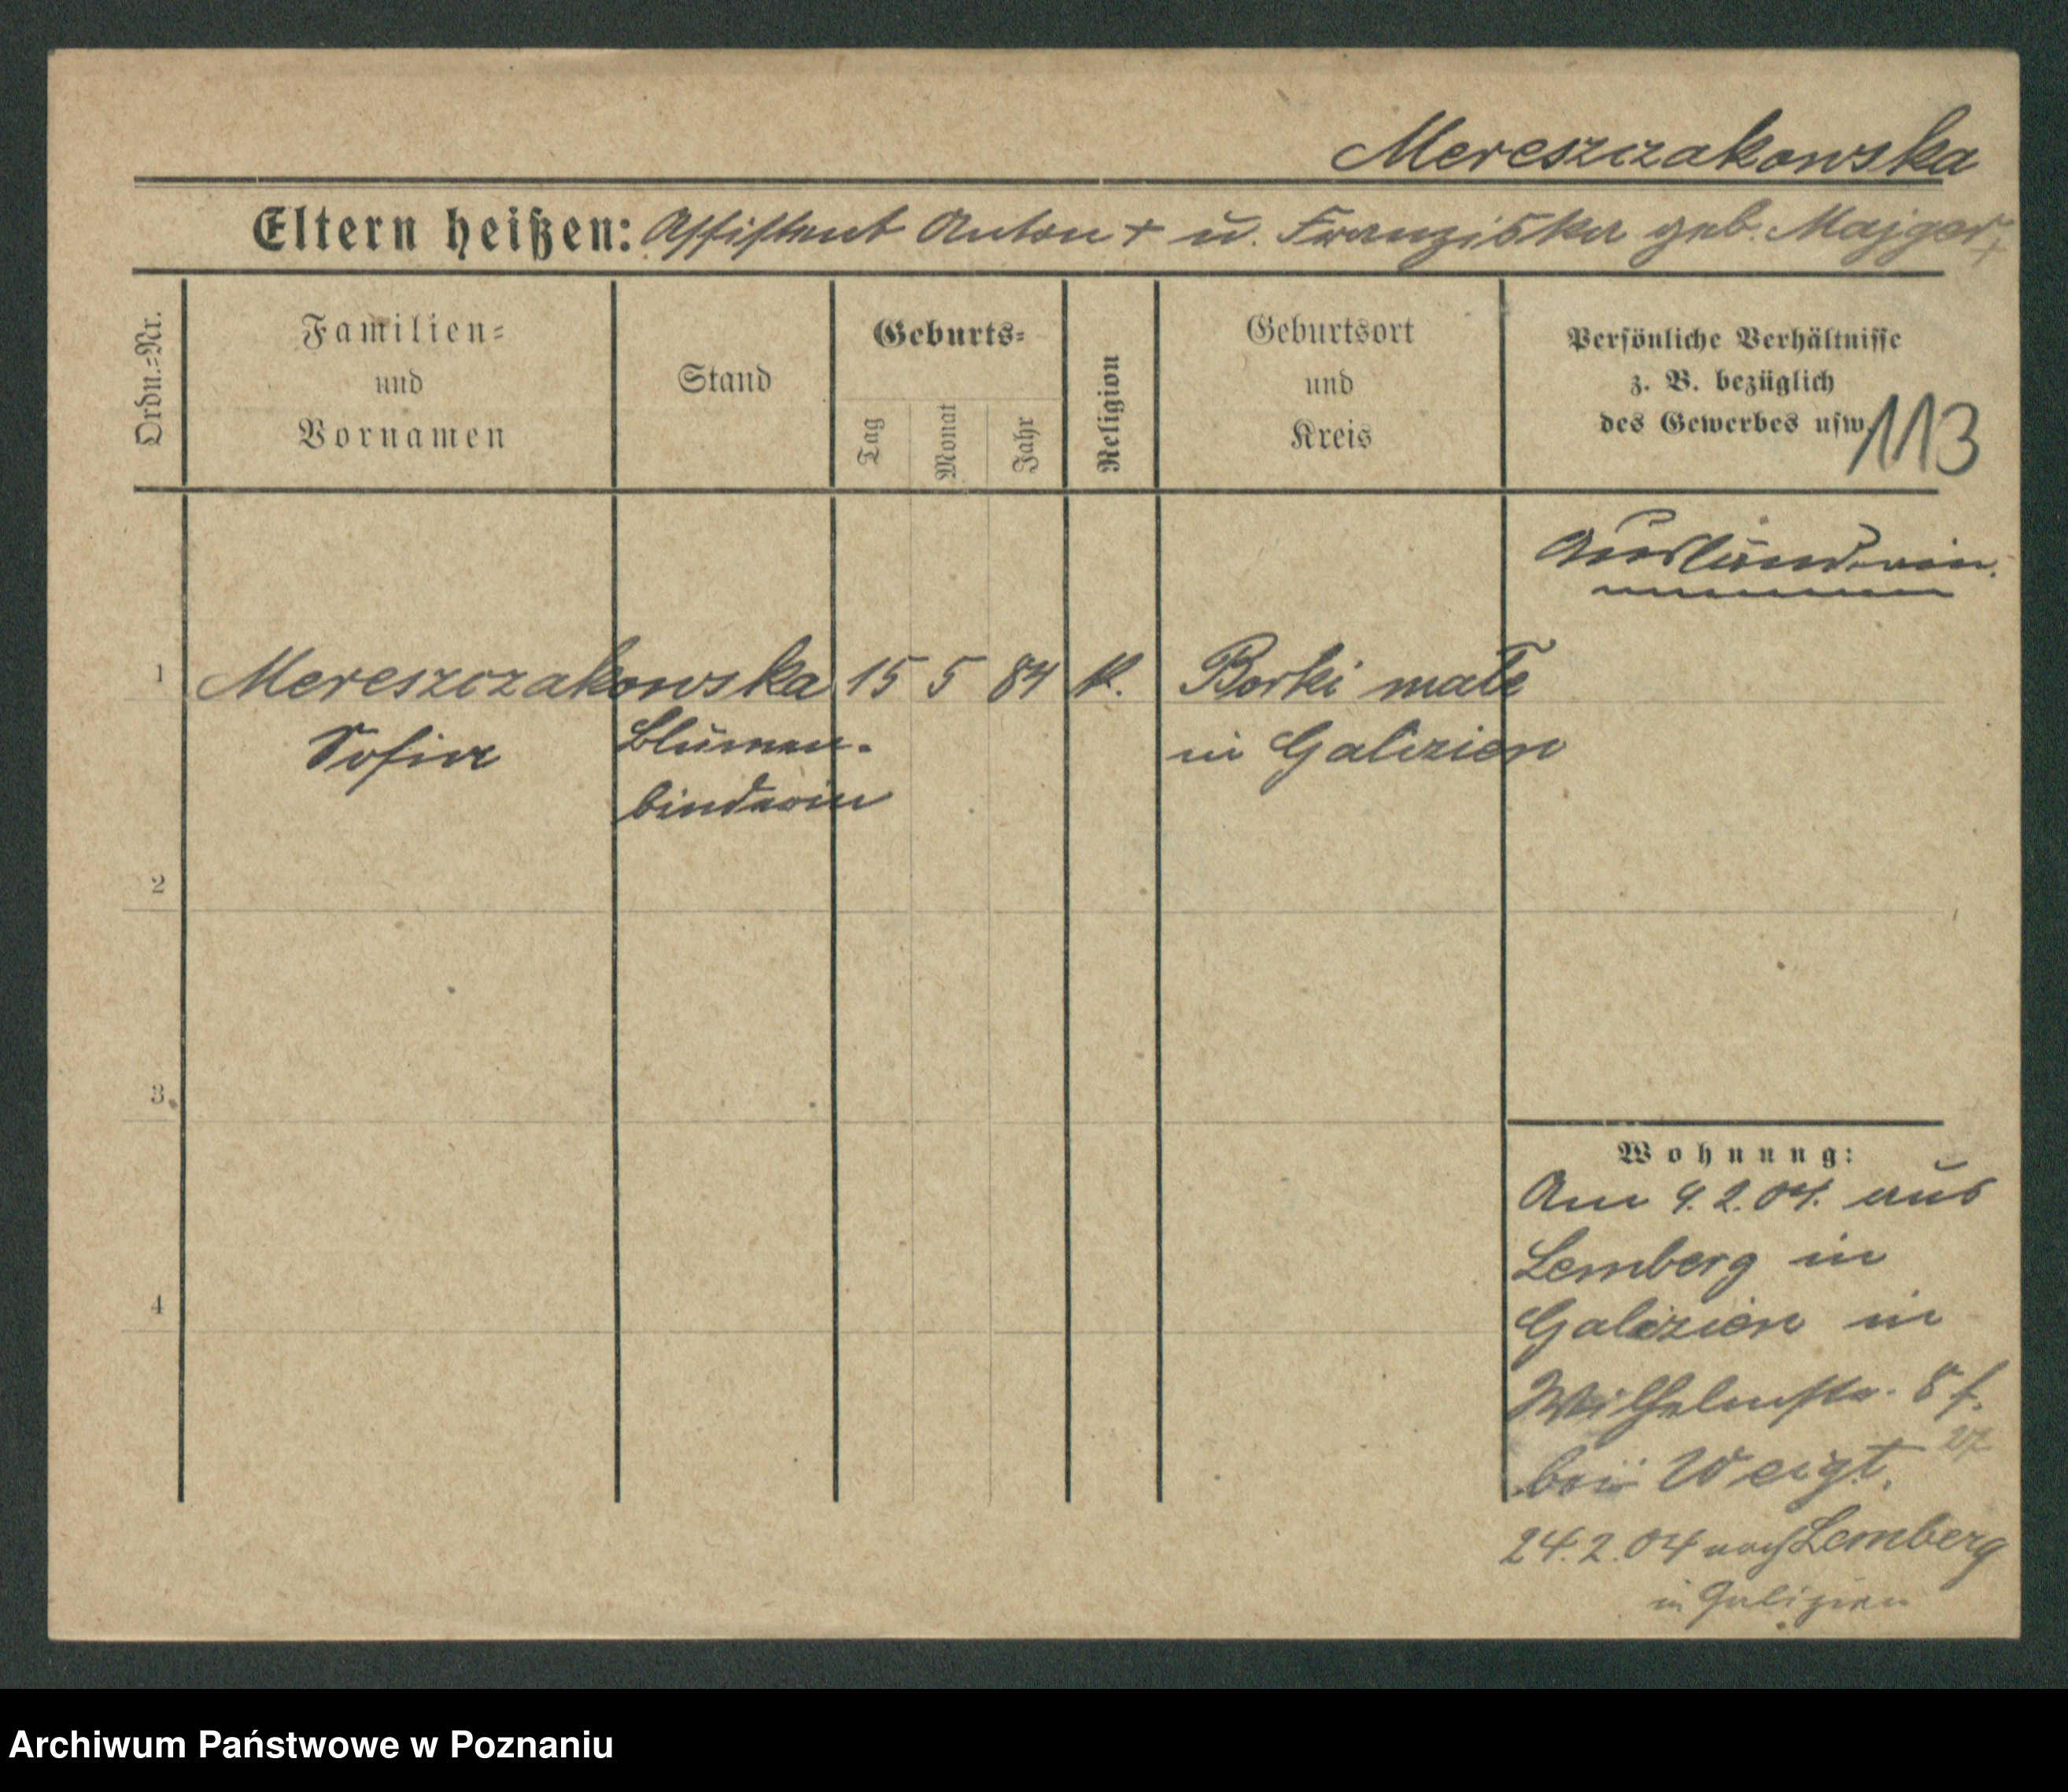 Mereszczakowska
Eltern heißen: Assistent Anton + u. Franziska geb. Majger +
Ordn.=Nr.
Familien=
und
Vornamen
Stand
Geburts=
Tag
Monat
Jahr
Religion
Geburtsort
und
Kreis
Persönliche Verhältnisse
z. B. bezüglich
des Gewerbes usw.
113
Ausländerin.
1 Mereszczakowska 15 5 84 k. Borki małe
Sofia Blumen- in Galizien
binderin
2
3
4
Wohnung:
Am 9.2.04. aus
Lemberg in
Galizien in
Wilhelmstr. 8 f.
bei Weigt.
24.2.04 nach Lemberg
in Galizien
Archiwum Państwowe w Poznaniu